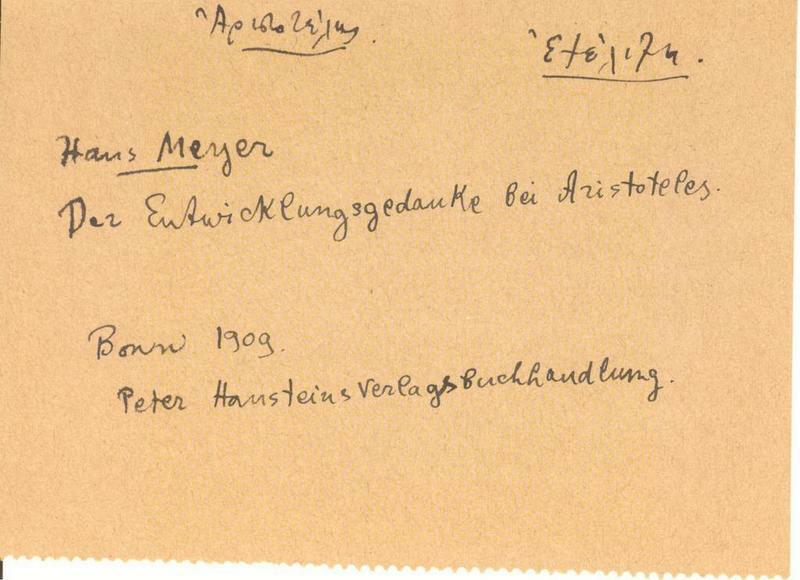 Ἀριστοτέλης.
Ἐξέλιξη.
Hans Meyer
Der Entwicklungsgedanke bei Aristoteles.
Bonn 1909.
Peter Hansteins Verlagsbuchhandlung.